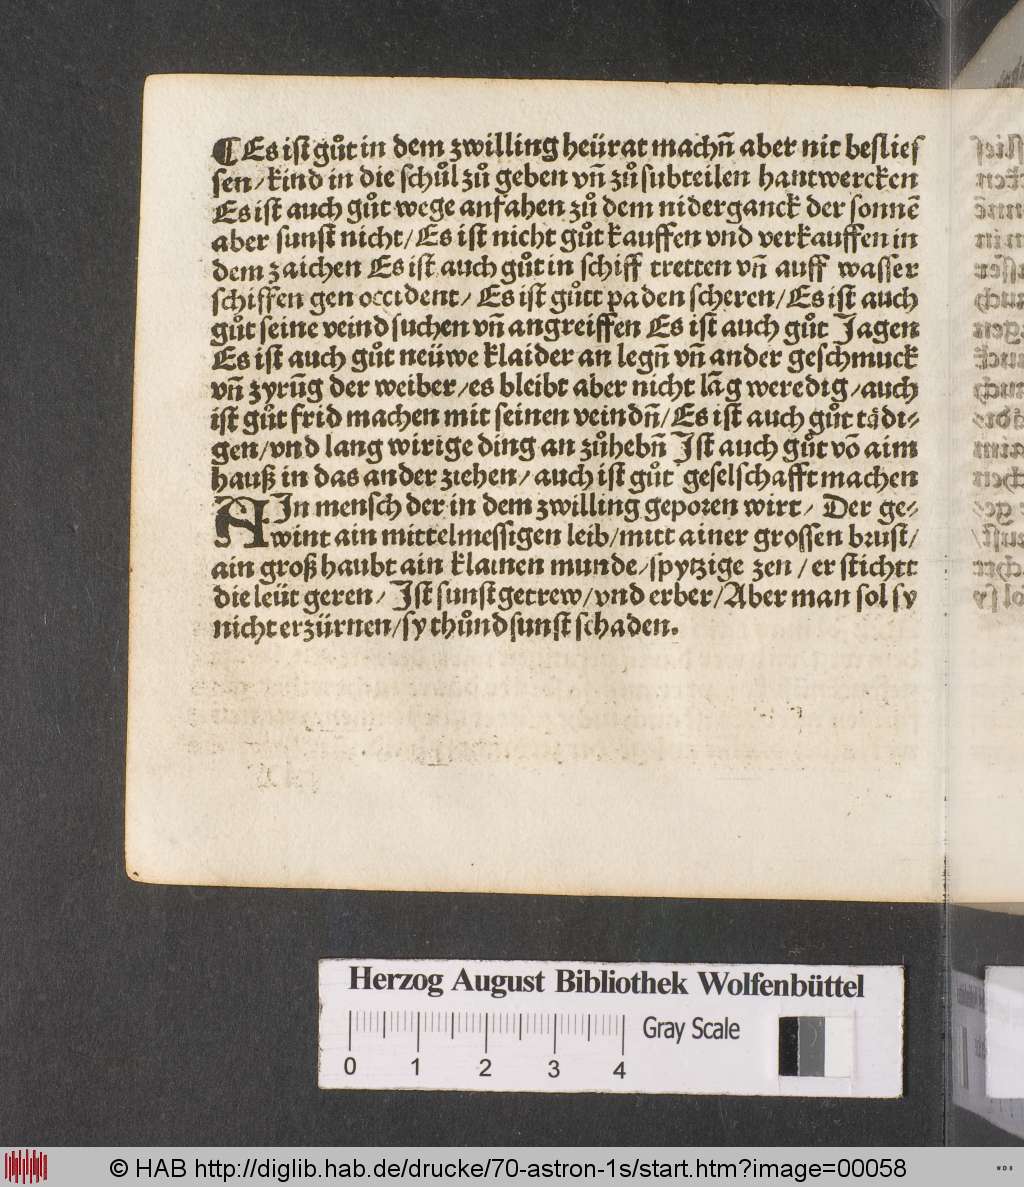 ¶ Es ist gůt in dem zwilling heürat machñ aber nit beslief
sen/ kind in die schůl zů geben vñ zů subteilen hantwercken
Es ist auch gůt wege anfahen zů dem niderganck der sonnē
aber sunst nicht/ Es ist nicht gůt kauffen vnd verkauffen in
dem zaichen Es ist auch gůt in schiff tretten vñ auff wasser
schiffen gen occident/ Es ist gůtt paden scheren/ Es ist auch
gůt seine veind suchen vñ angreiffen Es ist auch gůt Jagen
Es ist auch gůt neüwe klaider an legñ vñ ander geschmuck
vñ zyrūg der weiber/ es bleibt aber nicht lāg weredig/ auch
ist gůt frid machen mit seinen veindñ/ Es ist auch gůt tädi-
gen/ vnd lang wirige ding an zůhebñ Jst auch gůt vō aim
hauß in das ander ziehen/ auch ist gůt geselschafft machen
AJn mensch der in dem zwilling geporen wirt/ Der ge-
wint ain mittelmessigen leib/ mitt ainer grossen brust/
ain groß haubt ain klainen munde/ spytzige zen/ er stichtt
die leüt geren/ Jst sunst getrew/ vnd erber/ Aber man sol sy
nicht erzürnen/ sy thůnd sunst schaden.
Herzog August Bibliothek Wolfenbüttel
Gray Scale
0 1 2 3 4
© HAB http://diglib.hab.de/drucke/70-astron-1s/start.htm?image=00058